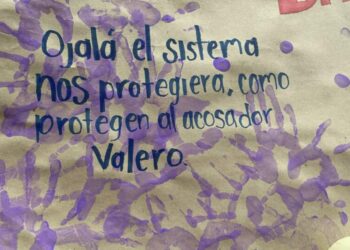 Ojalá el sistema
nos protegiera, como
protegen al acosador
Valero